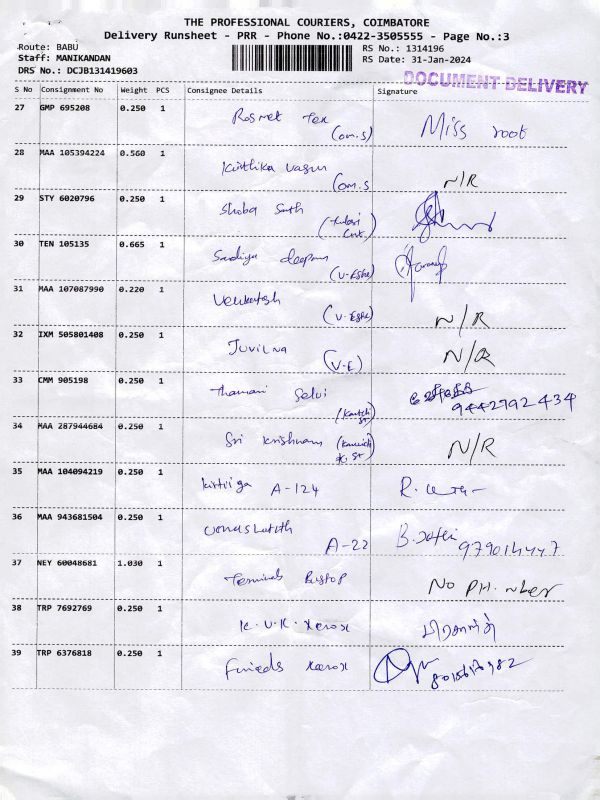 THE PROFESSIONAL COURIERS, COIMBATORE
Delivery Runsheet - PRR - Phone No.:0422-3505555 - Page No.:3
Route: BABU
Staff: MANIKANDAN
DRS No.: DCJB131419603
RS No.: 1314196
RS Date: 31-Jan-2024
DOCUMENT DELIVERY
S No Consignment No Weight PCS Consignee Details Signature
27 GMP 695208 0.250 1 Rosmet Tex Miss root
(om.s)
28 MAA 105394224 0.560 1 Kirthika N/R
(om.s
29 STY 6020796 0.250 1 Shoba
30 TEN 105135 0.665 1 Sandiya
31 MAA 107087990 0.220 1 Venkatesh N/R
32 IXM 505801408 0.250 1 Juvilna N/R
(V-E)
33 CMM 905198 0.250 1 Thamarai Selvi
9442792434
34 MAA 287944684 0.250 1 Sri Krishnam N/R
35 MAA 104094219 0.250 1 A-124 R.
36 MAA 943681504 0.250 1 A-22 B.
37 NEY 60048681 1.030 1 Terminal Bustop No PH. nber
38 TRP 7692769 0.250 1 K.V.K. Xerox
39 TRP 6376818 0.250 1 Frieds Xerox